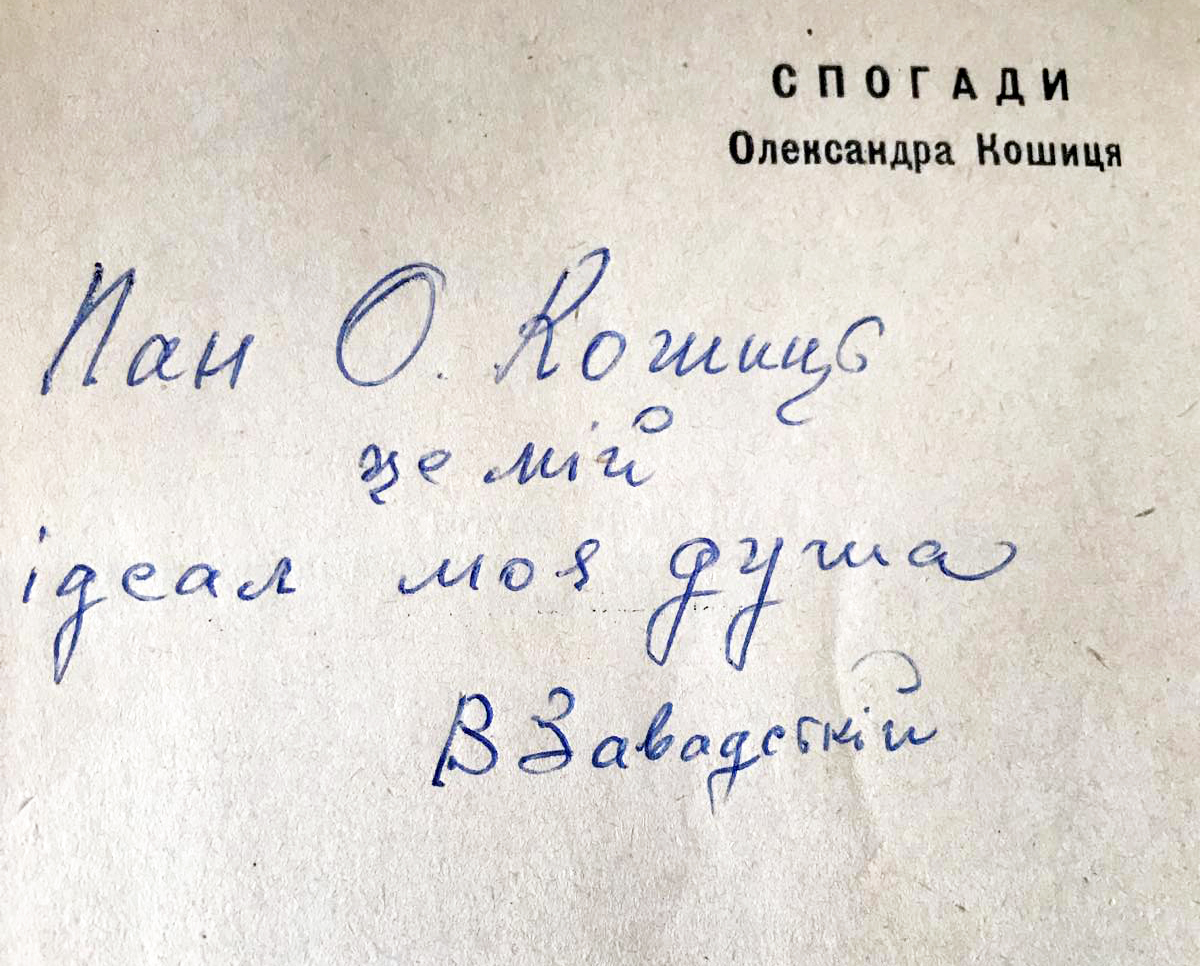 СПОГАДИ
Олександра Кошиця
Пан О. Кошиць
це мій
ідеал моя душа
В Завадсткій